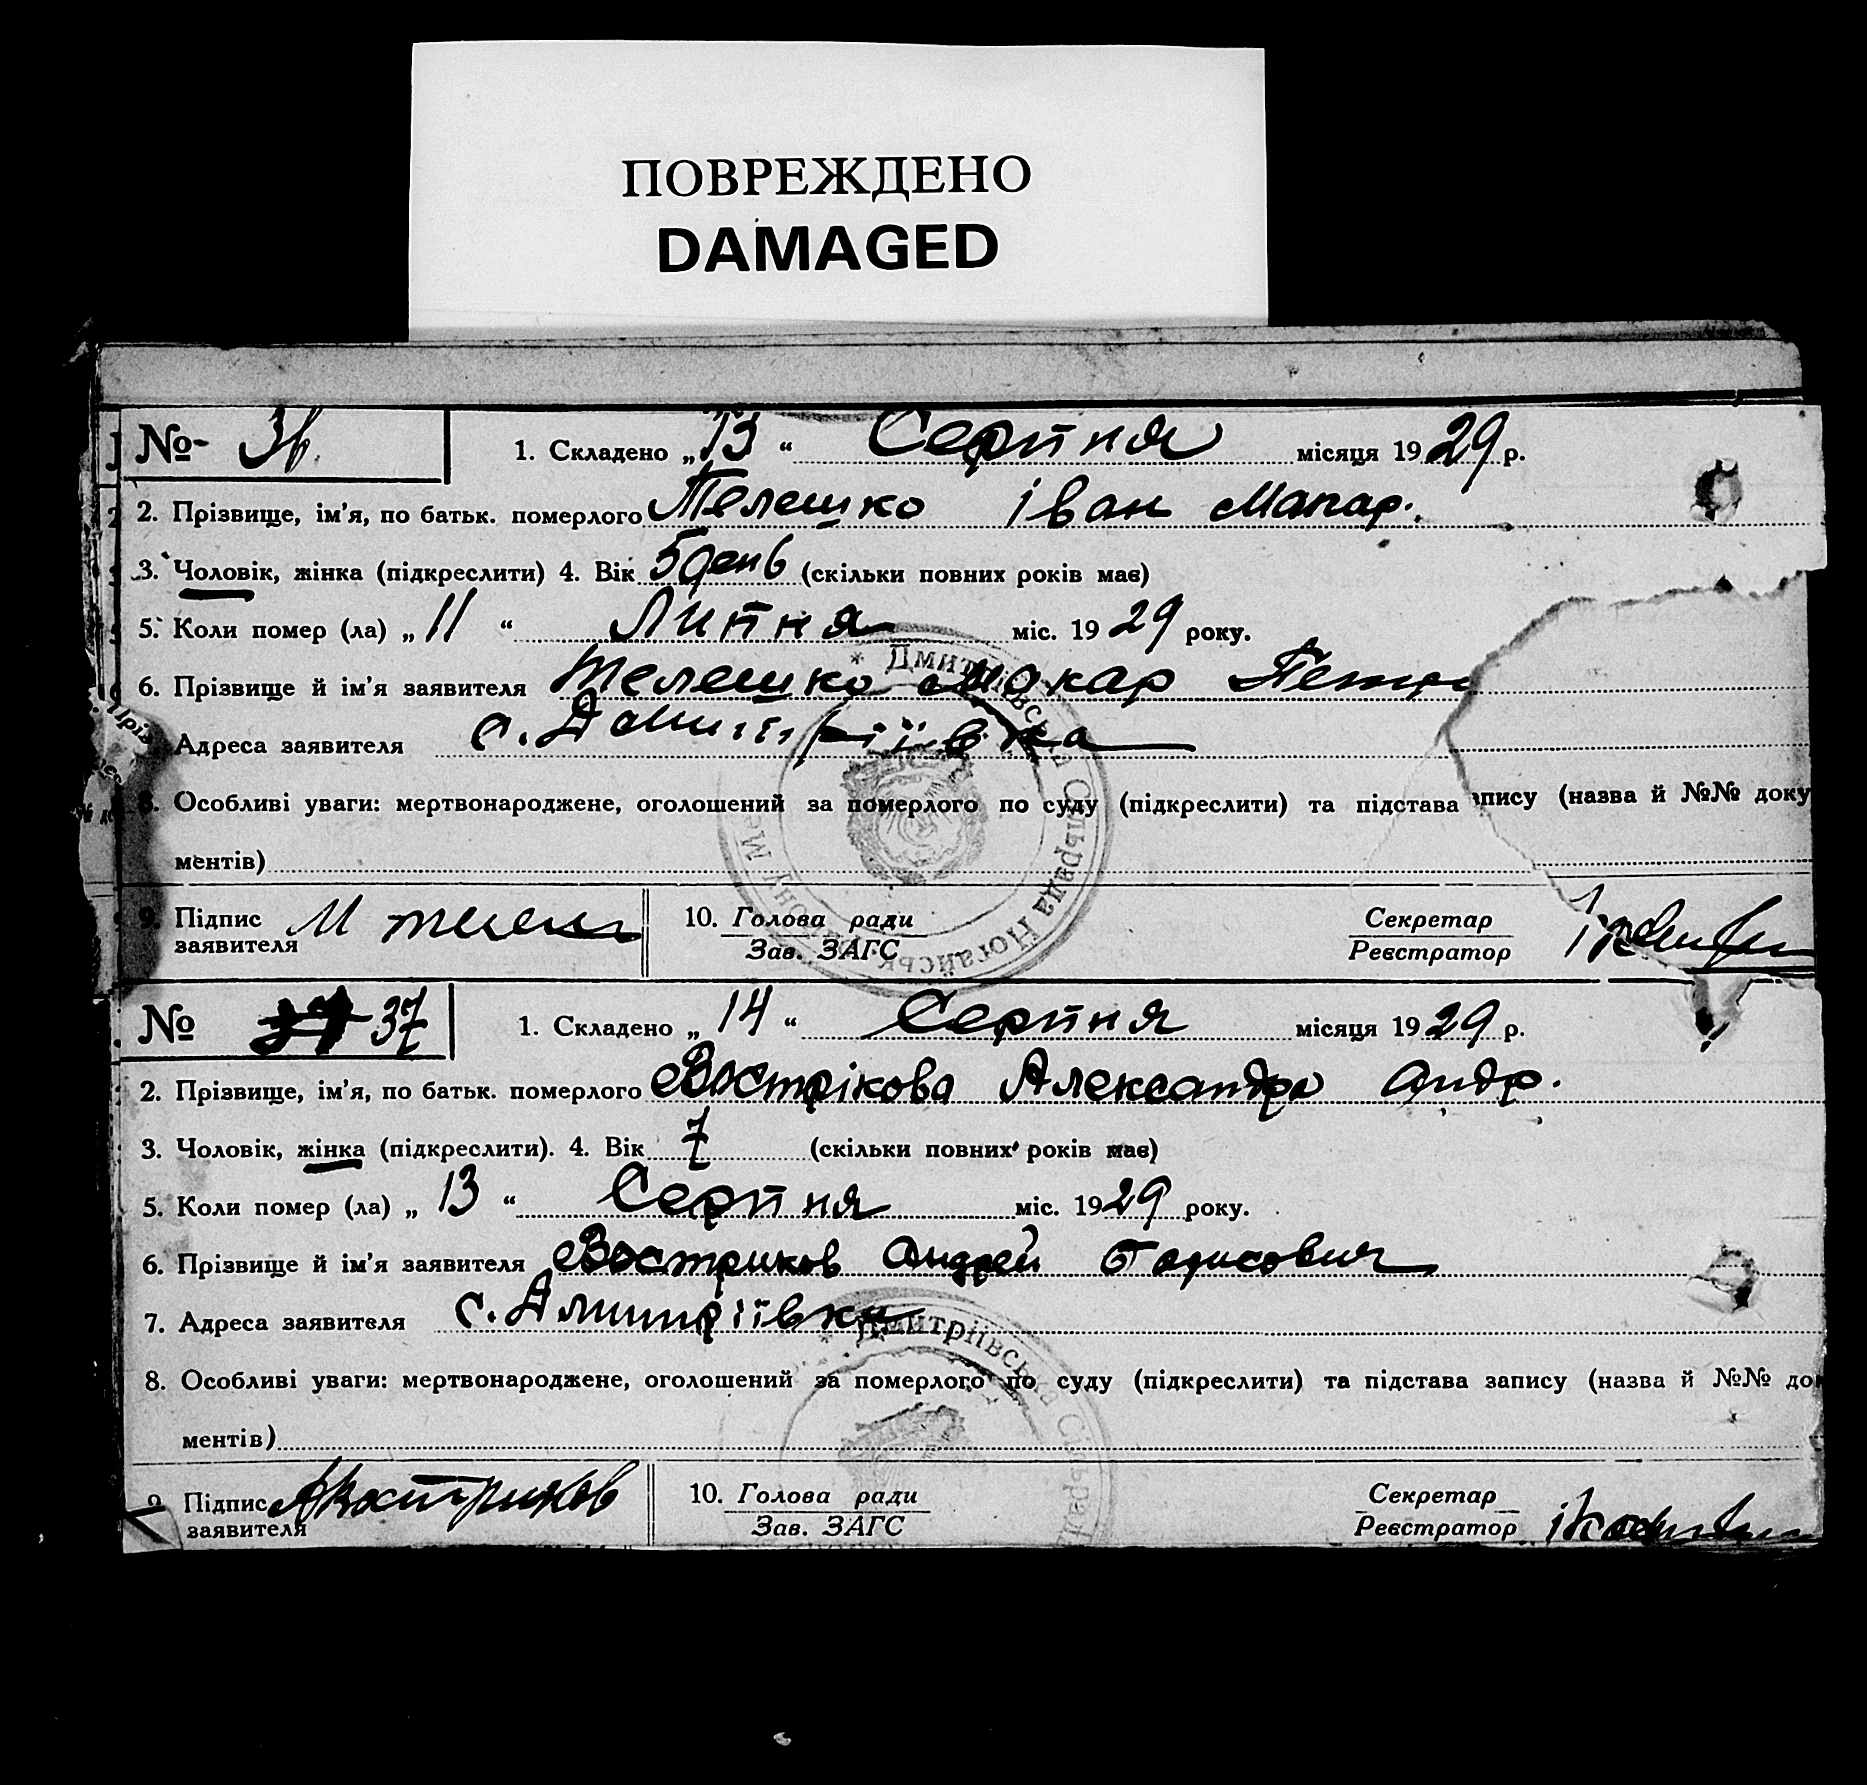 ПОВРЕЖДЕНО
DAMAGED
№ 36. 1. Складено „13“ Серпня місяця 1929 р.
2. Прізвище, ім'я, по батьк. померлого Телешко Іван Макар.
3. Чоловік, жінка (підкреслити) 4. Вік 5 день (скільки повних років має)
5. Коли помер (ла) „11“ Липня міс. 1929 року.
6. Прізвище й ім'я заявителя Телешко Макар
Адреса заявителя с. Дмитріївка
8. Особливі уваги: мертвонароджене, оголошений за померлого по суду (підкреслити) та підстава запису (назва й №№ доку
ментів)
9. Підпис заявителя М 10. Голова ради Секретар
Зав. ЗАГС Реєстратор
Дмитріївська Сільрада Ногайськ
№ 37 1. Складено „14“ Серпня місяця 1929 р.
2. Прізвище, ім'я, по батьк. померлого Вострікова Александра Андр.
3. Чоловік, жінка (підкреслити). 4. Вік 7 (скільки повних років має)
5. Коли помер (ла) „13“ Серпня міс. 1929 року.
6. Прізвище й ім'я заявителя Востриков Андрей
7. Адреса заявителя с. Дмитріївка
8. Особливі уваги: мертвонароджене, оголошений за померлого по суду (підкреслити) та підстава запису (назва й №№ до
ментів)
9 Підпис заявителя АВостриков 10. Голова ради Секретар
Зав. ЗАГС Реєстратор
Дмитріївська Сільрад